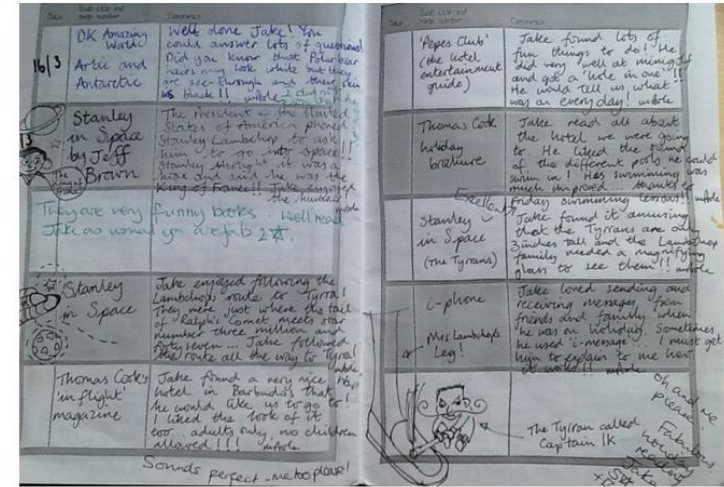 Book title and
page number
Comment
16/3
DK Amazing
World
Artic and
Antarctic
Well done Jake! You
could answer lots of questions!
Did you know that Polar bear
hairs may look white but they
are see-through and their skin
is black!!
I did not
Stanley
in Space
by Jeff
Brown
The President of the United
States of America phoned
Stanley Lambchop to ask
him to go into space!!
Stanley thought it was a
hoax and said he was the
King of France!! Jake enjoyed
the humour
They are very funny books. Well read
Jake as usual you are fab 2
Stanley
in Space
Jake enjoyed following the
Lambchops route to Tyrra!
They were just where the tail
of Ralph's Comet meets star
number three million and
forty seven... Jake followed
the route all the way to Tyrra!
Thomas Cook's
'in flight'
magazine
Jake found a very nice
hotel in Barbados that
he would like us to go to!
I liked the look of it
too... adults only, no children
allowed!!!
Sounds perfect - me too please!
Date
Book title and
page number
Comment
'Pepes Club'
(the hotel
entertainment
guide)
Jake found lots of
fun things to do! He
did very well at mini golf
and got a 'hole in one'!!
He would tell us what
was on everyday!
Thomas Cook
holiday
brochure
Jake read all about
the hotel we were going
to. He liked the sound
of the different pools he could
swim in! His swimming was
much improved... thanks to
Friday swimming lessons!!
Excellent
Stanley
in Space
(The Tyrrans)
Jake found it amusing
that the Tyrrans are only
3 inches tall and the Lambchop
family needed a magnifying
glass to see them!!
i-phone
Jake loved sending and
receiving messages from
friends and family when
he was on holiday. Sometimes
he used 'i-message'... I must get
him to explain to me how
it works!!
Mrs Lambchops
Leg!
The Tyrran called
Captain IK
oh and me
please
Fabulous
holiday
reading
Jake